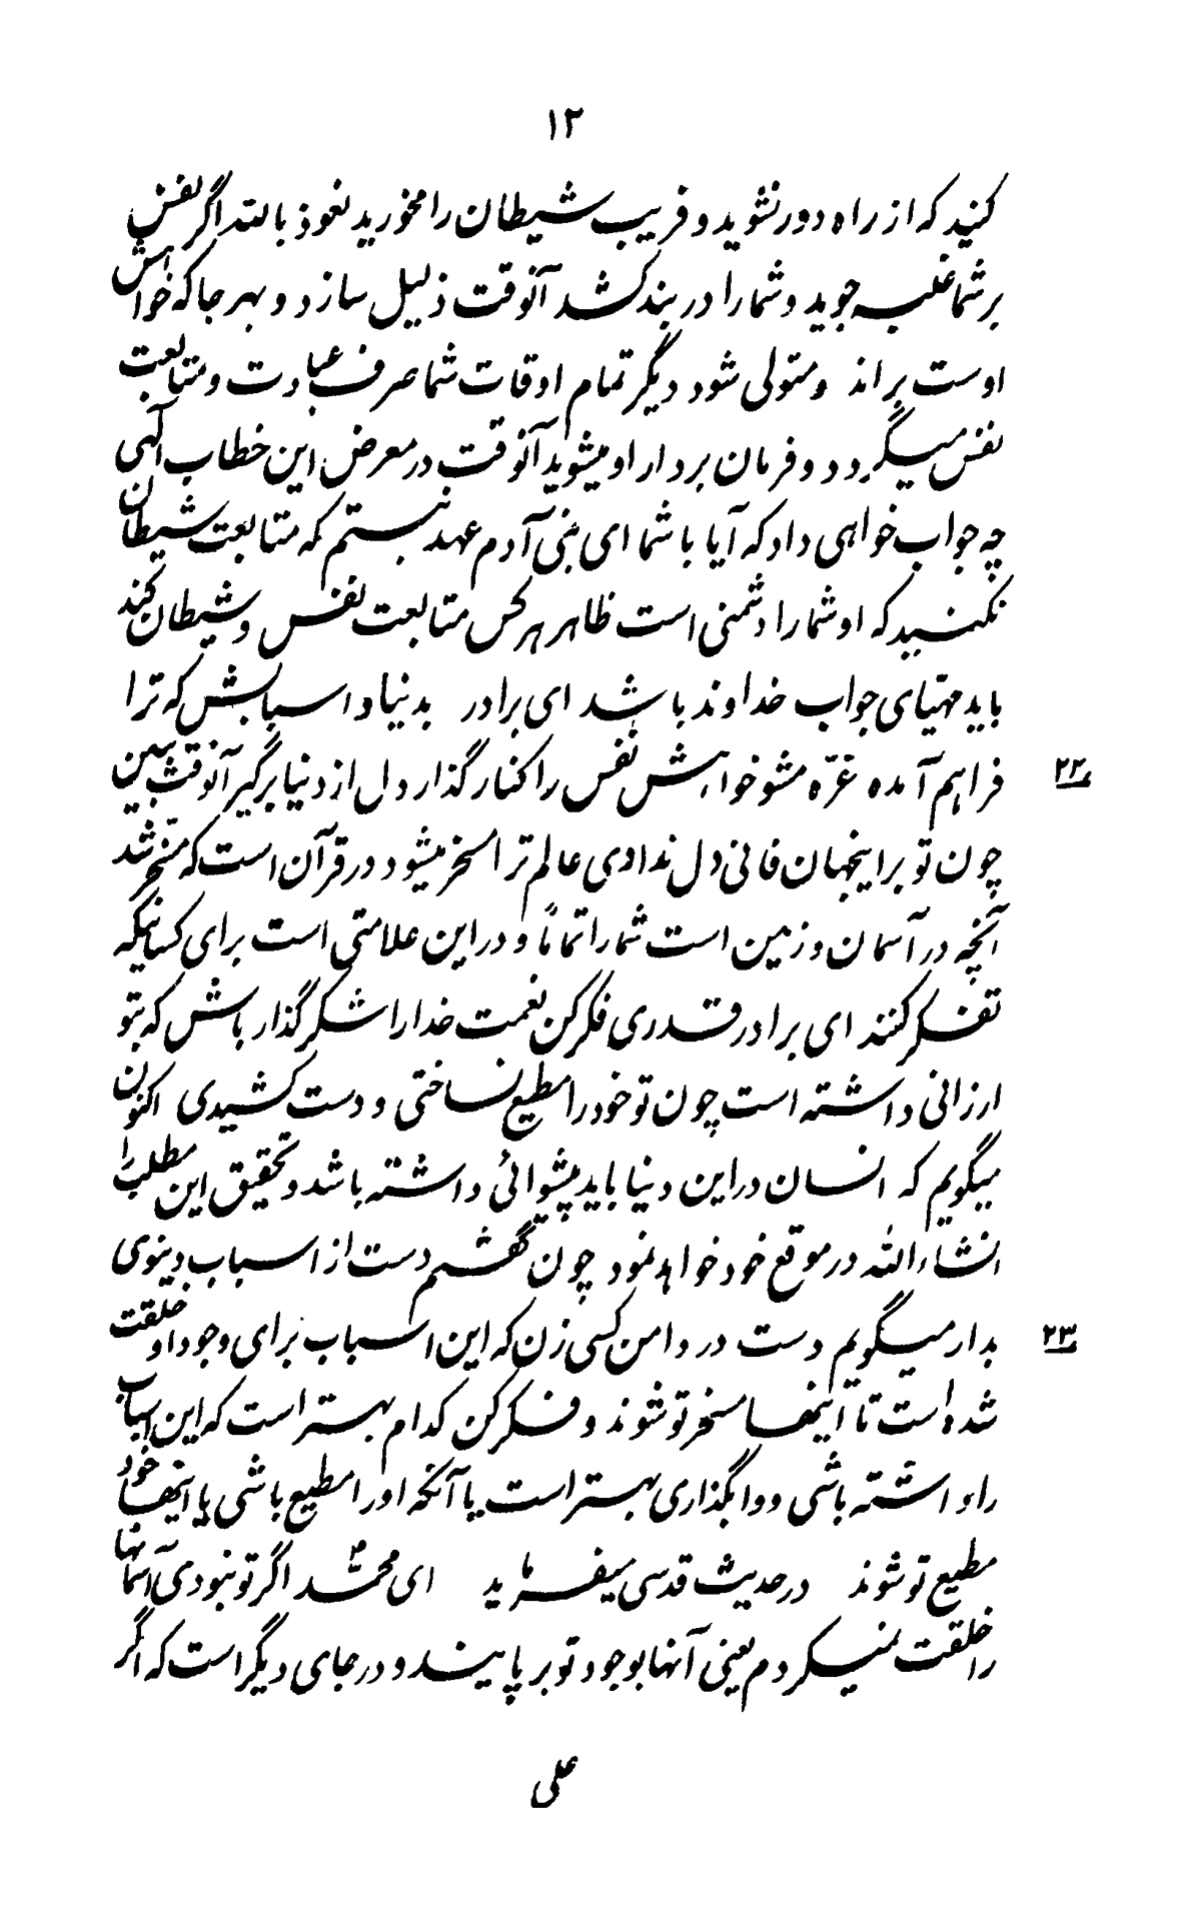 ۱۲
کنید که از راه دور نشوید و فریب شیطان را مخورید نعوذ بالله اگر نفس
بر شما غلبه جوید و شما را در بند کشد آنوقت ذلیل سازد و بهر جا که خواهش
اوست براند و متولی شود دیگر تمام اوقات شما صرف عبادت و متابعت
نفس میگردد و فرمان بردار او میشوید آنوقت در معرض این خطاب الهی
چه جواب خواهی داد که آیا با شما ای بنی آدم عهد نبستم که متابعت شیطان
نکنید که او شما را دشمنی است ظاهر هر کس متابعت نفس و شیطان کند
باید مهیای جواب خداوند باشد ای برادر بدنیا و اسبابش که ترا
فراهم آمده غرّه مشو خواهش نفس را کنار گذار و دل از دنیا برگیر آنوقت ببین
۲۲
چون تو بر اینجهان فانی دل ندادی عالم ترا مسخر میشود در قرآن است که مسخّر شد
آنچه در آسمان و زمین است شما را تماماً و در این علامتی است برای کسانیکه
تفکر کنند ای برادر قدری فکر کن نعمت خدا را شکر گذار باش که بتو
ارزانی داشته است چون تو خود را مطیع نساختی و دست کشیدی اکنون
میگویم که انسان در این دنیا باید پیشوائی داشته باشد و تحقیق این مطلب را
انشاءالله در موقع خود خواهد نمود چون گفتم دست از اسباب دینوی
بدار میگویم دست در دامن کسی زن که این اسباب برای وجود او خلقت
۲۳
شده است تا اینها مسخر تو شوند و فکر کن کدام بهتر است که این اسباب
را داشته باشی و وابگذاری بهتر است یا آنکه او را مطیع باشی یا اینها خود
مطیع تو شوند در حدیث قدسی میفرماید ای محمّد اگر تو نبودی آسمانها
را خلقت نمیکردم یعنی آنها بوجود تو بر پایند و در جای دیگر است که اگر
علی